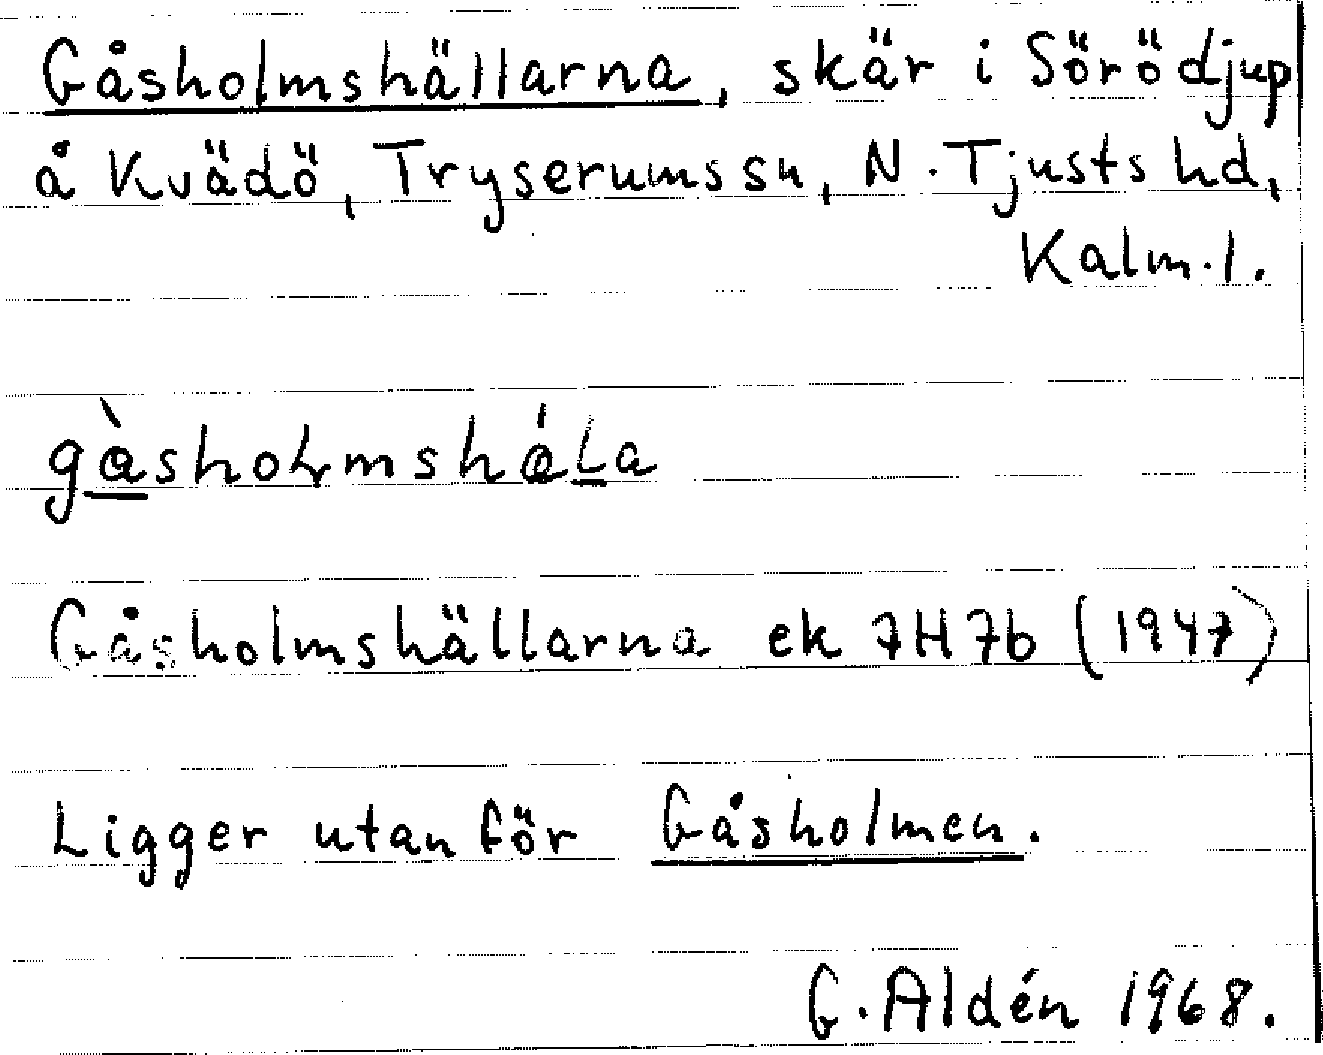 Gåsholmshällarna, skär i Sörödjup
å Kvädö, Tryserums sn, N. Tjusts hd,
Kalm. l.
gàshoLmsháLa
Gåsholmshällarna ek 7H7b (1947)
Ligger utanför Gåsholmen.
G. Aldén 1968.